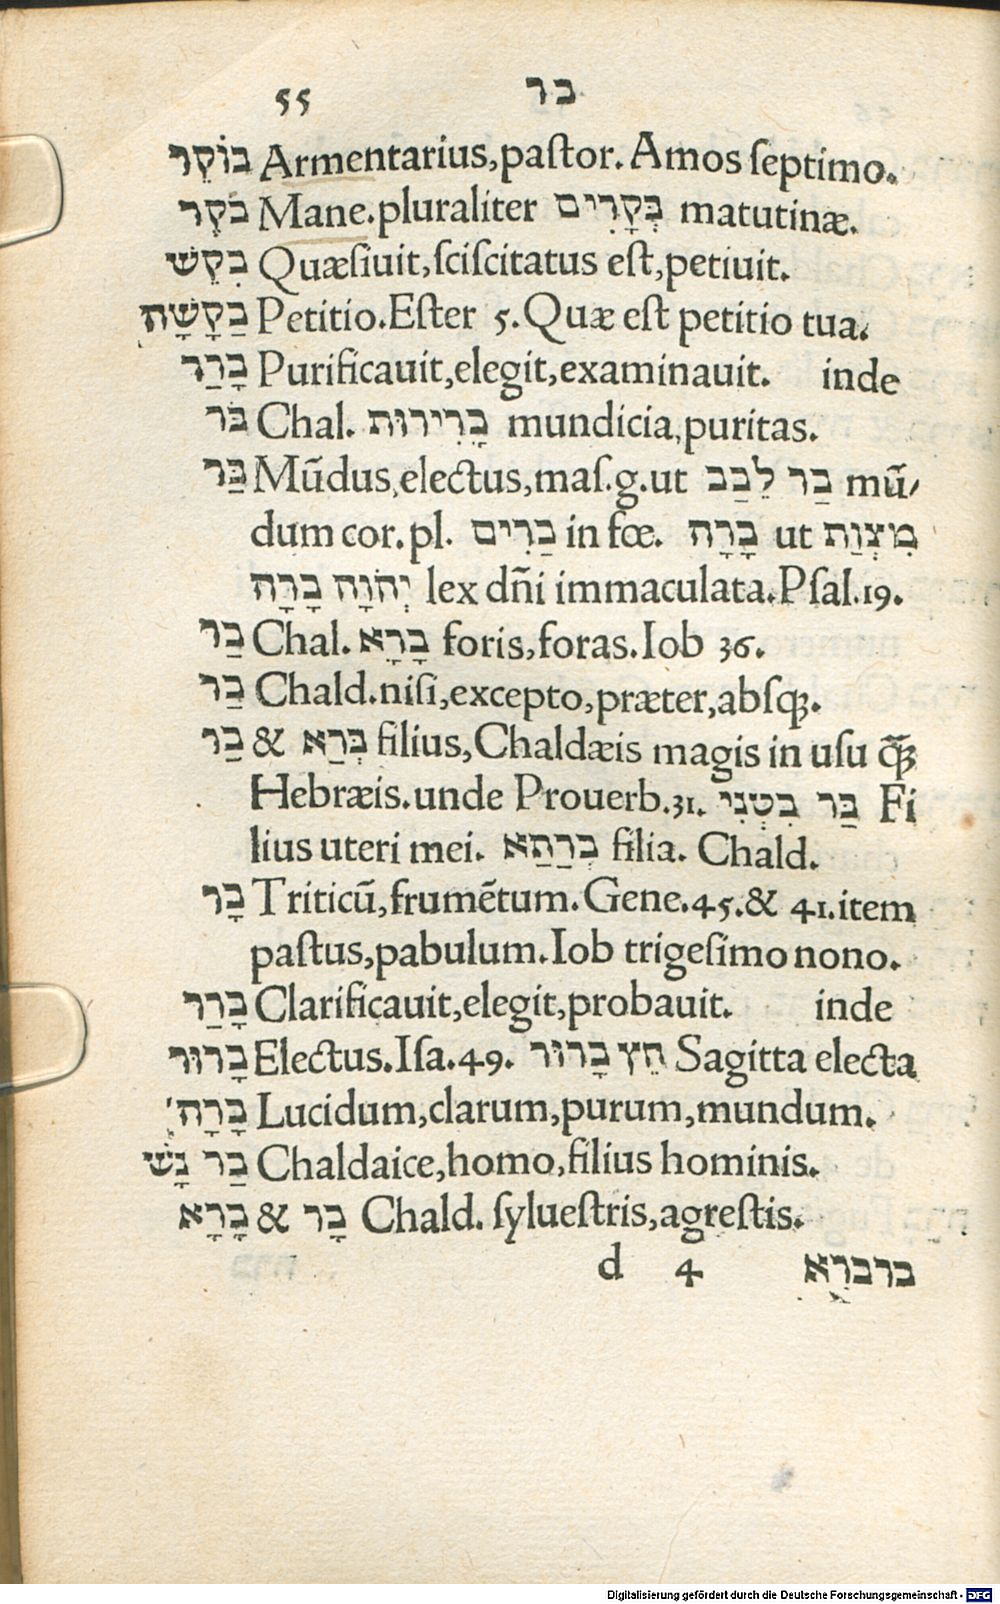 55 בר
בוֹקֵר Armentarius,paſtor.Amos ſeptimo.
בֹּקֶר Mane.pluraliter בְּקָרִים matutinæ.
בִּקֵּשׁ Quæſiuit,ſciſcitatus eſt,petiuit.
בַּקָּשָׁה Petitio.Eſter 5.Quæ eſt petitio tua.
בָּרַר Purificauit,elegit,examinauit. inde
בֹּר Chal. בָּרִירוּת mundicia,puritas.
בַּר Mūdus,electus,maſ.g.ut בַּר לֵבַב mū/
dum cor.pl. בַּרִים in fœ. בָּרָה ut מִצְוַת
יְהֹוָה בָּרָה lex dñi immaculata.Pſal.19.
בַּר Chal. בָּרָא foris,foras.Iob 36.
בַּר Chald.niſi,excepto,præter,abſqꝫ.
בַּר & בְּרַא filius,Chaldæis magis in uſu q̃ꝫ
Hebræis.unde Prouerb.31. בַּר בִּטְנִי Fi
lius uteri mei. בְּרַתַא filia. Chald.
בָּר Triticū,frumētum.Gene.45.& 41.item
paſtus,pabulum.Iob trigeſimo nono.
בָּרַר Clarificauit,elegit,probauit. inde
בָּרוּר Electus.Iſa.49. חֵץ בָּרוּר Sagitta electa
בָּרָה Lucidum,clarum,purum,mundum.
בַּר נָשׁ Chaldaice,homo,filius hominis.
בָּרָא & בָּר Chald. ſylueſtris,agreſtis.
d 4 ברברא
Digitalisierung gefördert durch die Deutsche Forschungsgemeinschaft - DFG